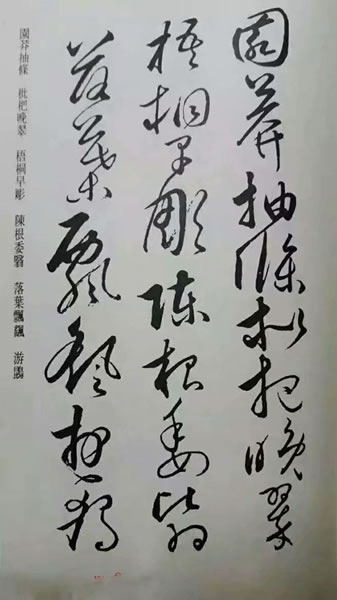 園莽抽條枇杷晚翠
梧桐早彫陳根委翳
落葉飄颻游鵾
園莽抽條 枇杷晚翠 梧桐早彫 陳根委翳 落葉飄颻 游鵾